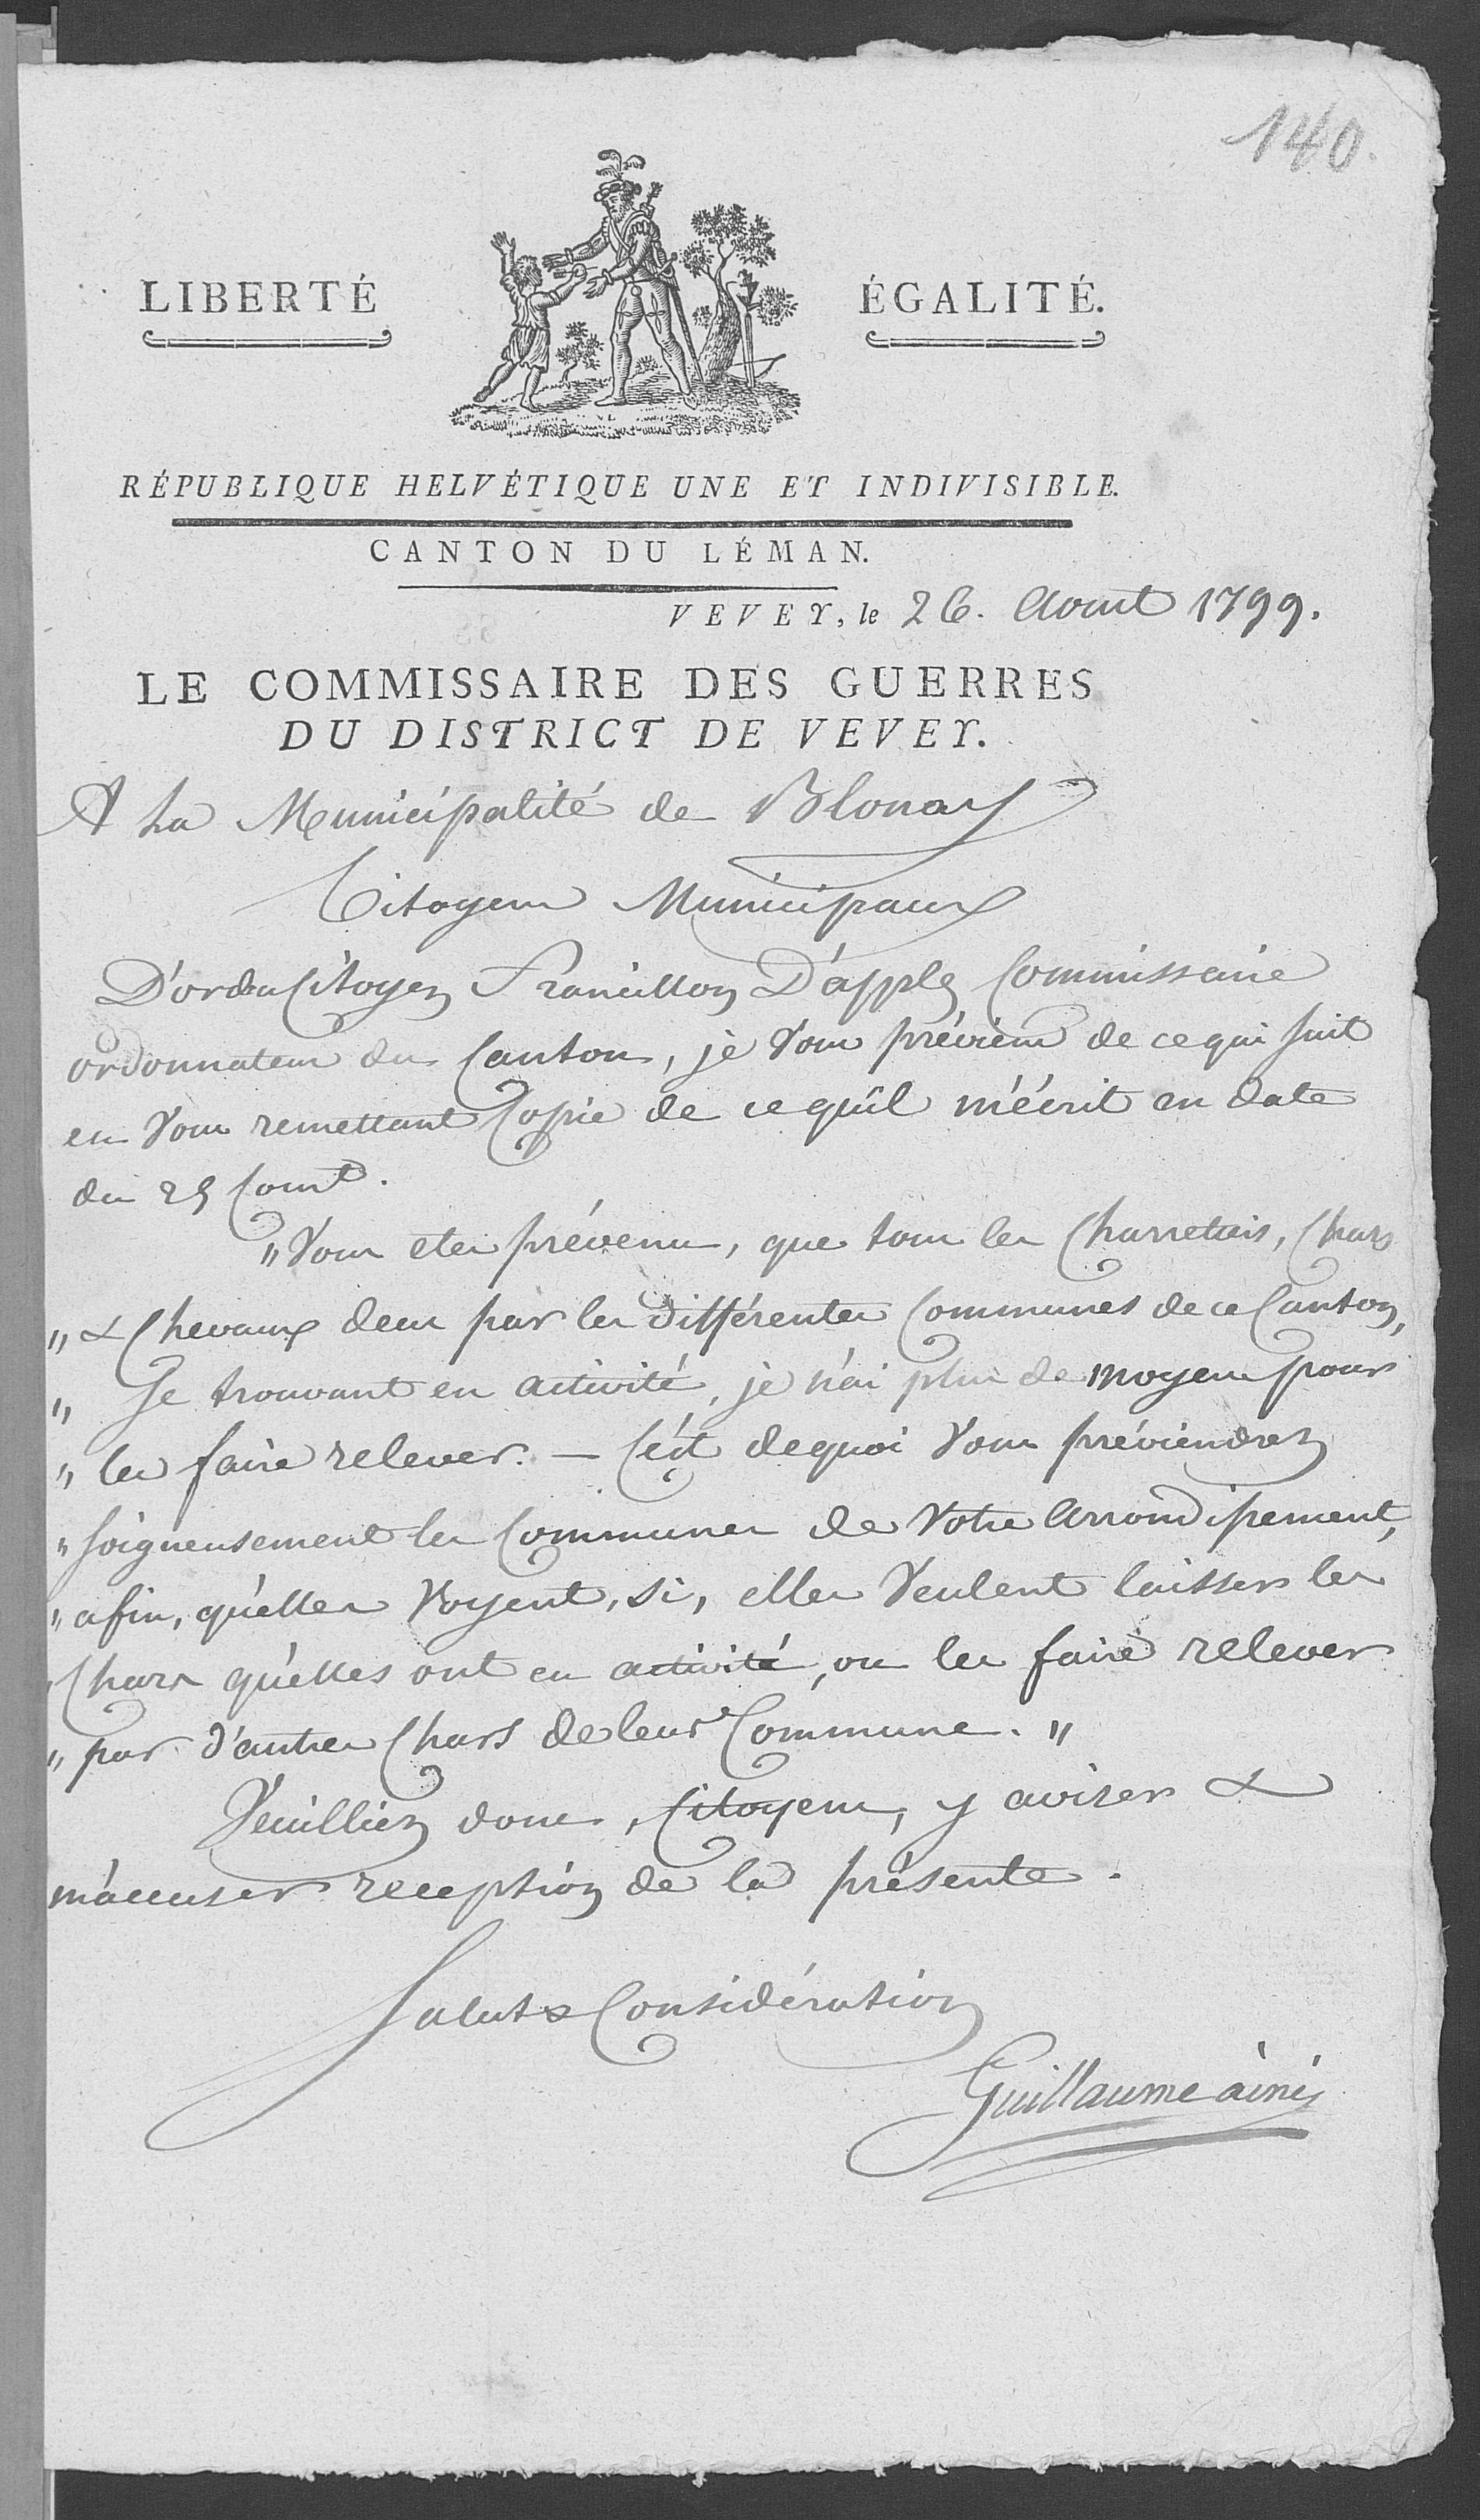 140.
LIBERTÉ
ÉGALITÉ.
RÉPUBLIQUE HELVÉTIQUE UNE ET INDIVISIBLE.
CANTON DU LÉMAN.
VEVEY, le 26. Aout 1799.
LE COMMISSAIRE DES GUERRES
DU DISTRICT DE VEVEY.
A La Municipalité de Blonay
Citoyens Municipaux
D'ordu Citoyen Francillon D'apples Commissaire
ordonnateur du Canton, je Vous préviens de ce qui suit
en Vous remettant Copie de ce qu'il m'écrit en date
du 25 Court.
"Vous etes prévenu, que tous les Charretiers, Chars
" & Chevaux deus par les différentes Communes de ce Canton,
" Se trouvant en activité, je n'ai plus de moyens pour
" les faire relever. — C'est dequoi Vous préviendrez
" soigneusement les Communes de Votre Arrondissement,
" afin, qu'elles Voyent, si, elles Veulent laisser les
" Chars qu'elles ont en activité, ou les faire relever
" par d'autres Chars de leur Commune. "
Veuilliez donc, Citoyens, y aviser &
m'accuser reception de la présente.
Salut & Considération
Guillaume ainé